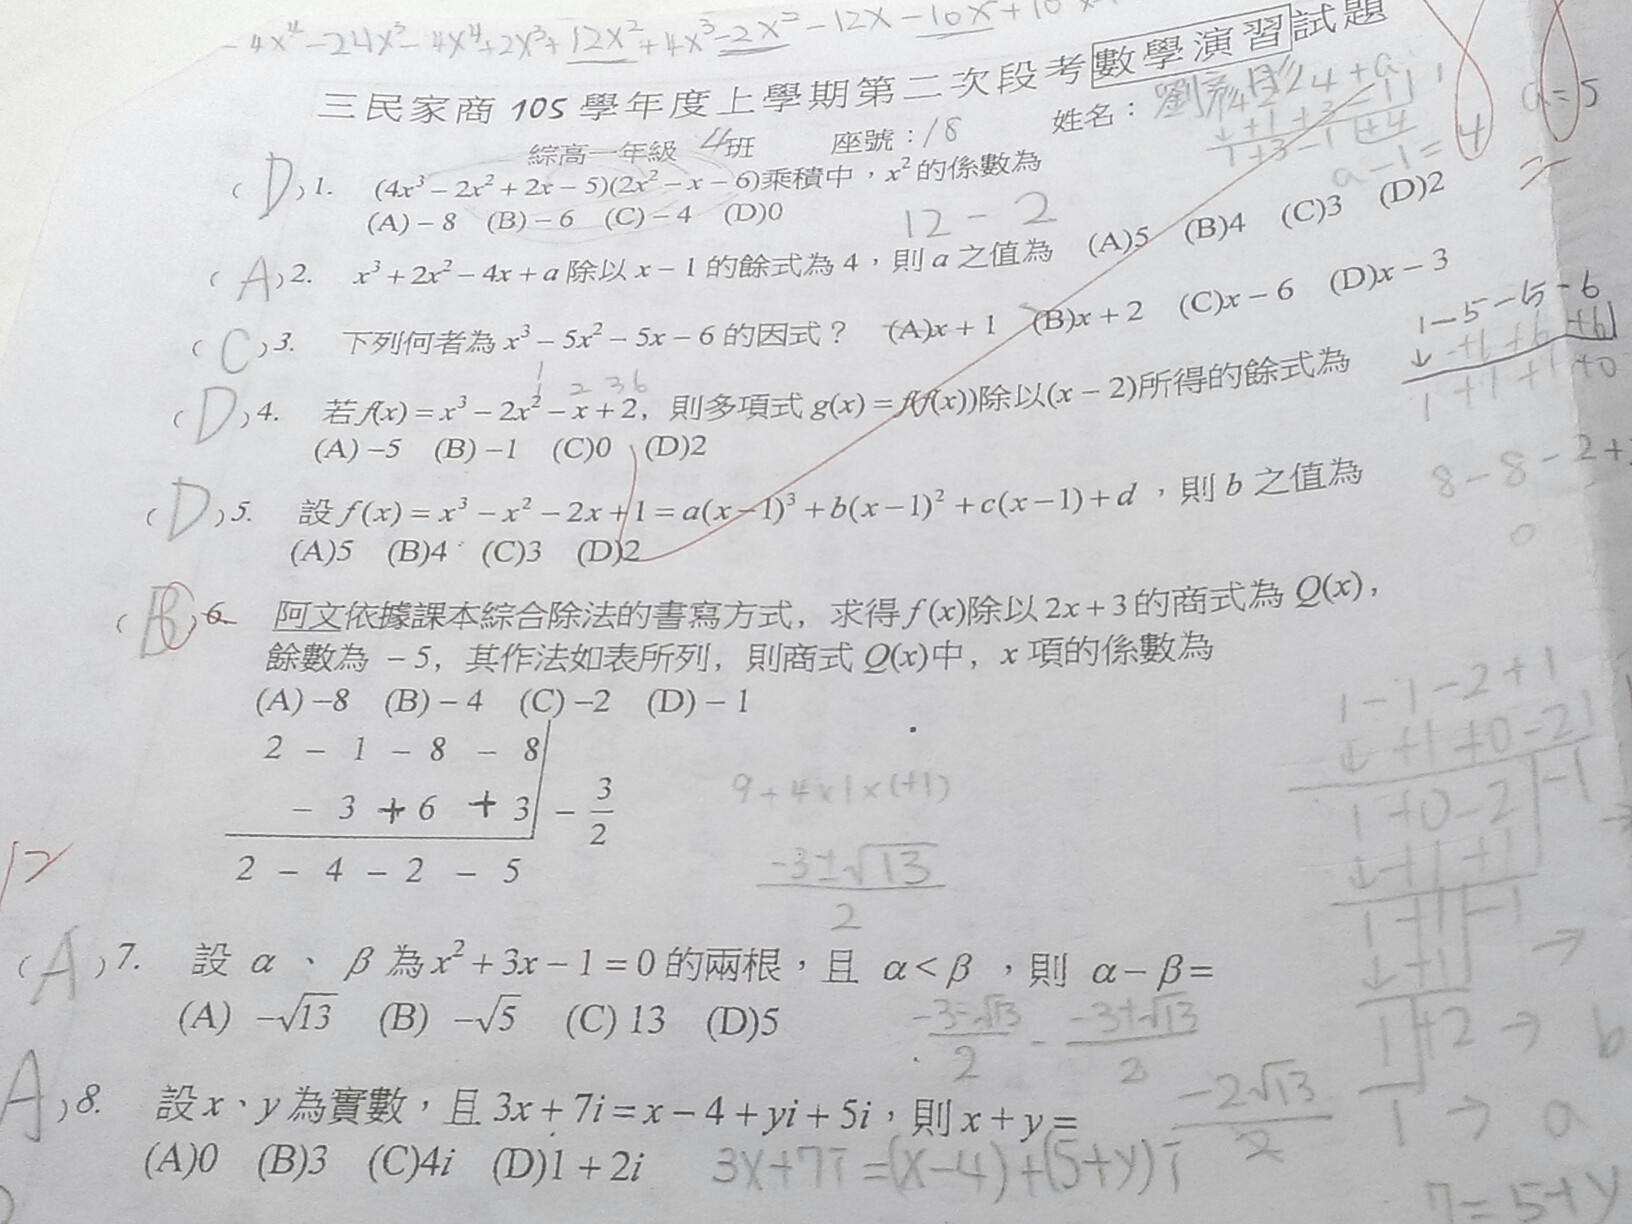 -4x⁴-24x³-4x⁴+2x³+12x²+4x³-2x²-12x-10x+10
三民家商 105 學年度上學期第二次段考數學演習試題
綜高一年級 4班 座號:18 姓名:
a=5
a-1=4
(D)1. (4x³-2x²+2x-5)(2x²-x-6)乘積中,x²的係數為
(A)-8 (B)-6 (C)-4 (D)0
12-2
(A)2. x³+2x²-4x+a 除以 x-1 的餘式為 4,則 a 之值為 (A)5 (B)4 (C)3 (D)2
(C)3. 下列何者為 x³-5x²-5x-6 的因式? (A)x+1 (B)x+2 (C)x-6 (D)x-3
1-5-5-6
1+1+1+0
1 2 3 6
(D)4. 若f(x)=x³-2x²-x+2,則多項式 g(x)=f(f(x))除以(x-2)所得的餘式為
(A)-5 (B)-1 (C)0 (D)2
8-8-2+
0
(D)5. 設 f(x)=x³-x²-2x+1=a(x-1)³+b(x-1)²+c(x-1)+d,則 b 之值為
(A)5 (B)4 (C)3 (D)2
(B)6. 阿文依據課本綜合除法的書寫方式,求得 f(x)除以 2x+3 的商式為 Q(x),
餘數為 -5,其作法如表所列,則商式 Q(x)中,x 項的係數為
(A)-8 (B)-4 (C)-2 (D)-1
2 - 1 - 8 - 8
- 3 + 6 + 3 - 3/2
2 - 4 - 2 - 5
9+4×1×(+1)
-3±√13
2
1-1-2+1
+1+0-2 1
1+0-2 -1
+1+1
1+1 -1
+1
1 +2 → b
1 → a
(A)7. 設 α、β 為 x²+3x-1=0 的兩根,且 α<β,則 α-β=
(A) -√13 (B) -√5 (C) 13 (D)5
-3-√13 / 2 - -3+√13 / 2
-2√13 / 2
(A)8. 設 x、y 為實數,且 3x+7i=x-4+yi+5i,則 x+y=
(A)0 (B)3 (C)4i (D)1+2i
3x+7i=(x-4)+(5+y)i
7=5+y